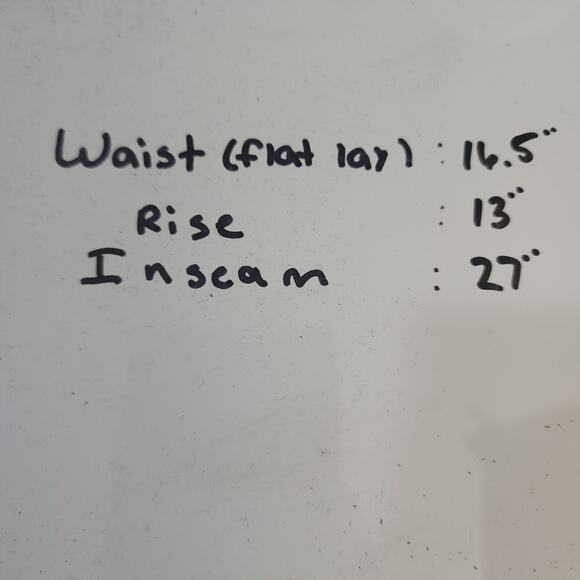 Waist (flat lay) : 16.5"
Rise : 13"
Inseam : 27"